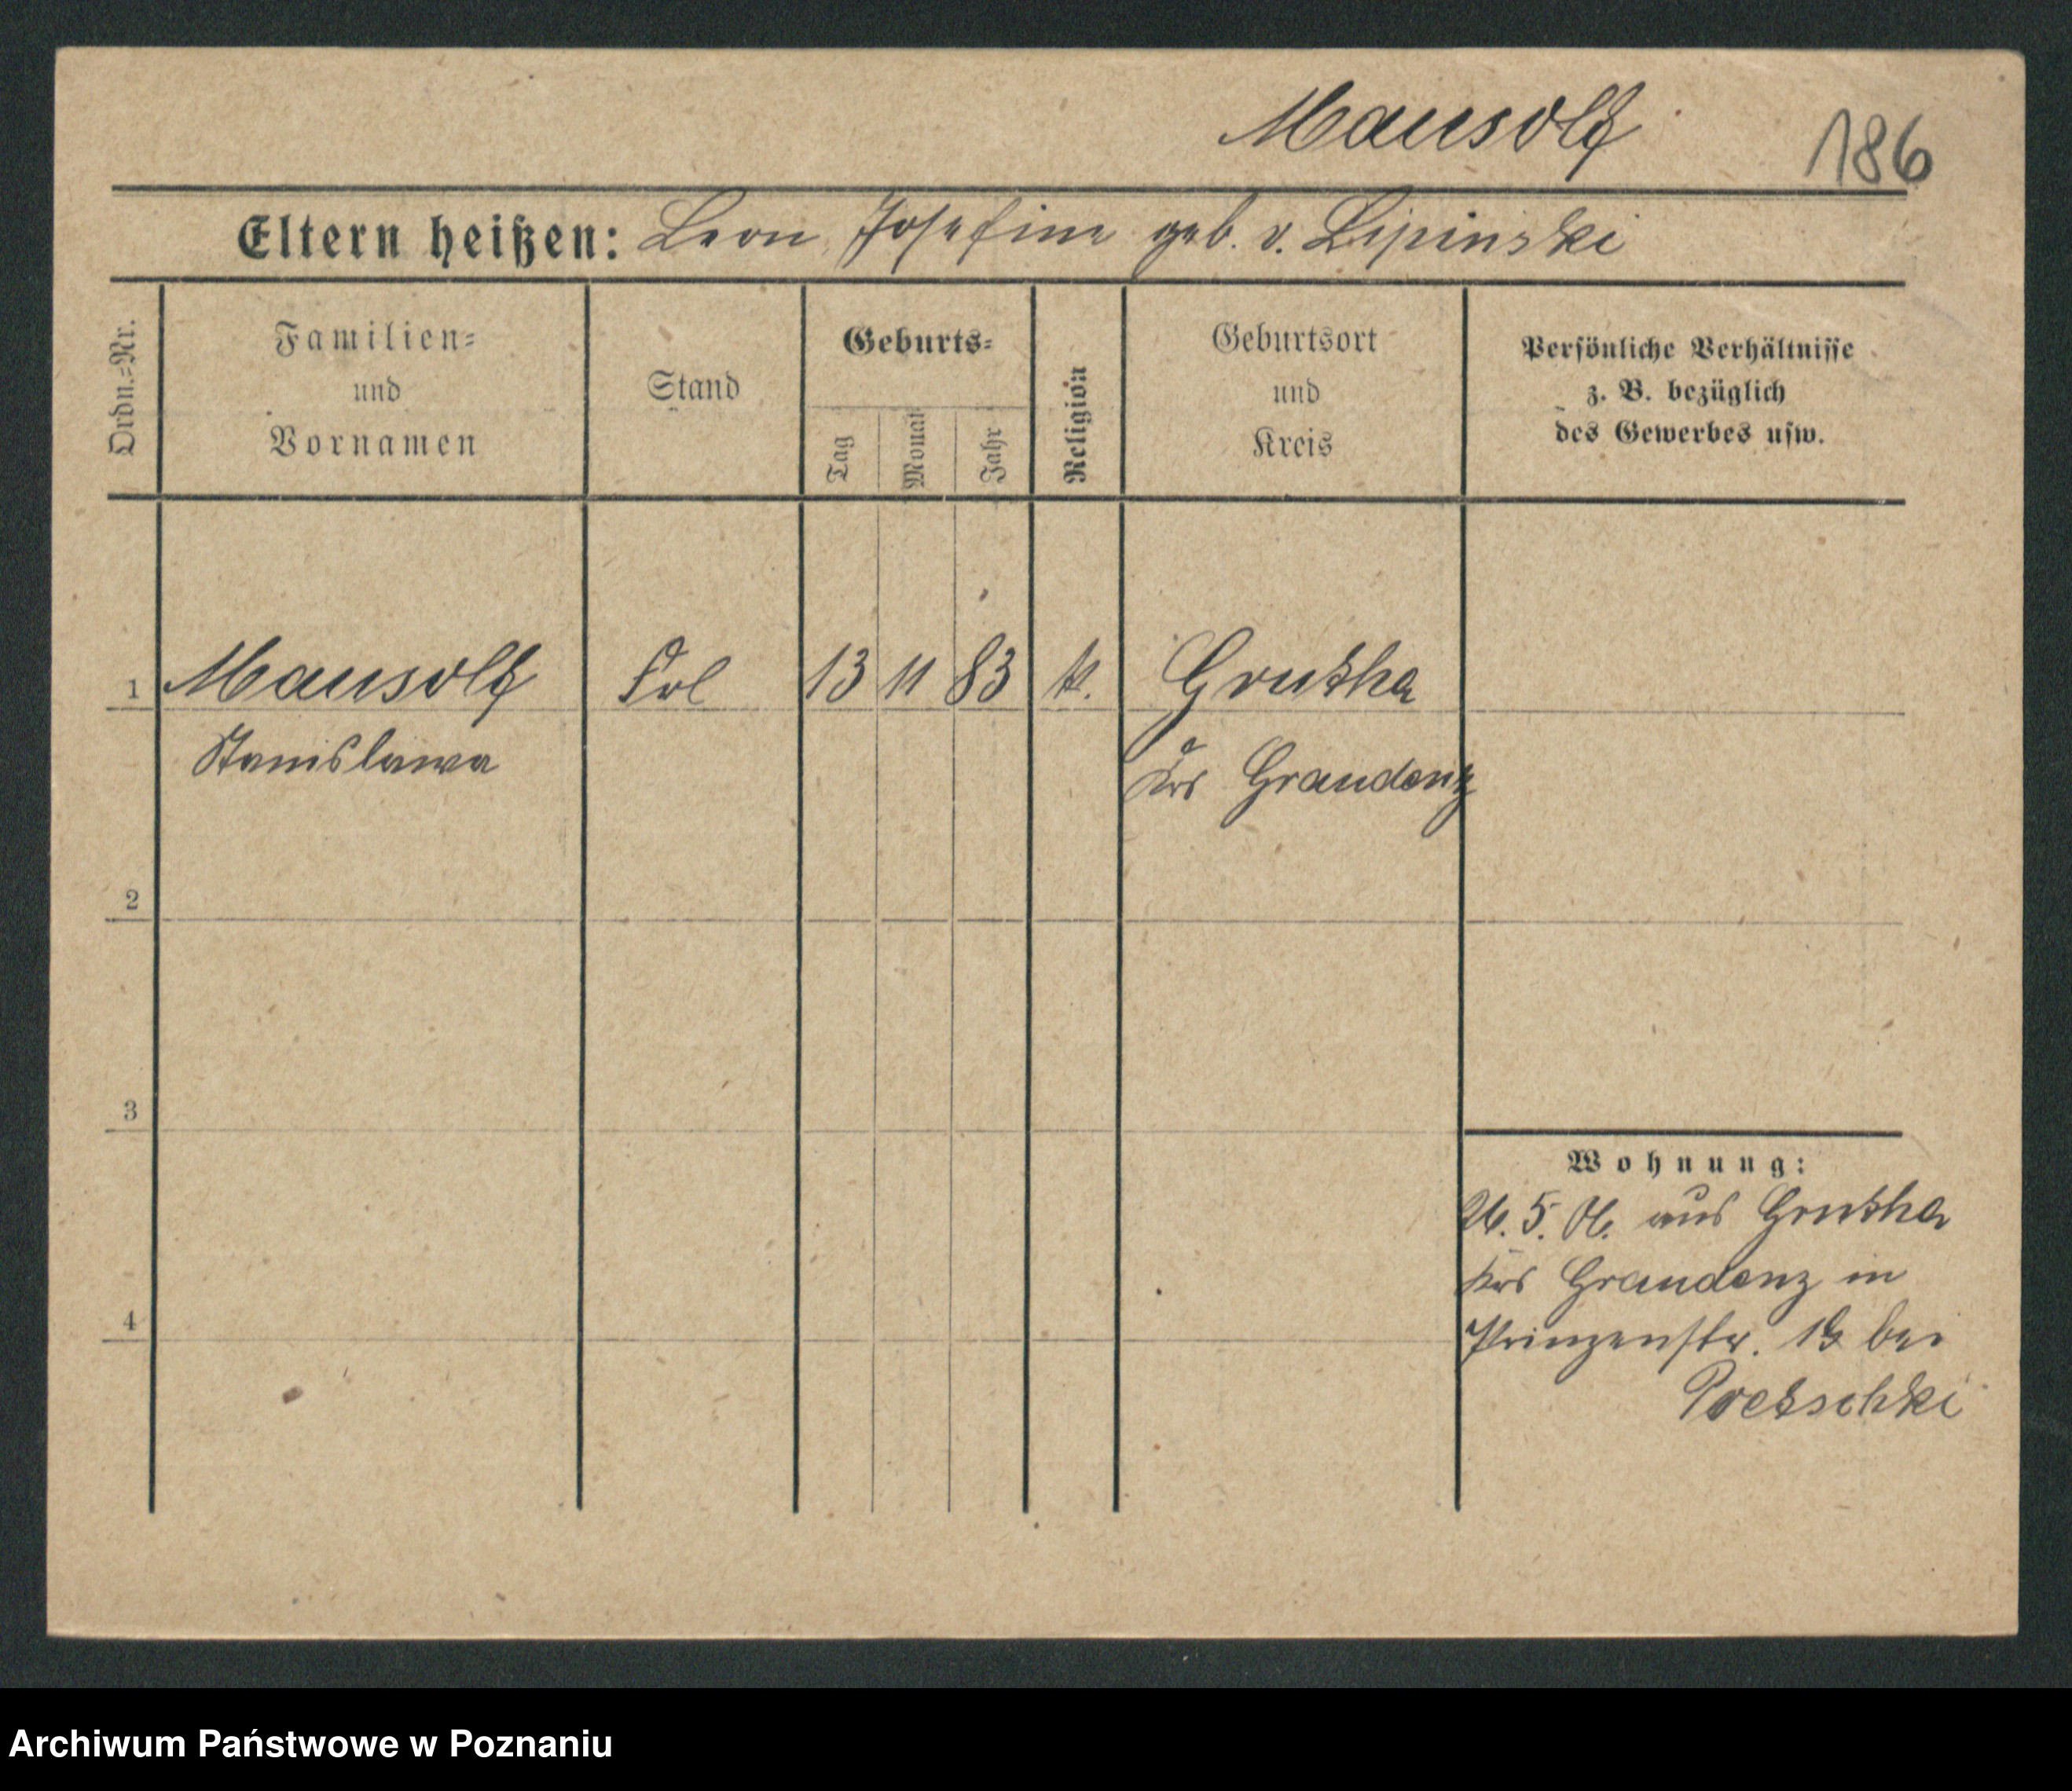 Mausolf
186
Eltern heißen: Leon Josefine geb. v. Lipinski
Ordn.=Nr.
Familien= und Vornamen
Stand
Geburts=
Tag
Monat
Jahr
Religion
Geburtsort und Kreis
Persönliche Verhältnisse z. B. bezüglich des Gewerbes usw.
1 Mausolf Frl 13 11 83 k. Grutha
Stanislawa Krs Graudenz
2
3
Wohnung:
26. 5. 06. aus Grutha
Krs Graudenz in
4
Prinzenstr. bei
Archiwum Państwowe w Poznaniu